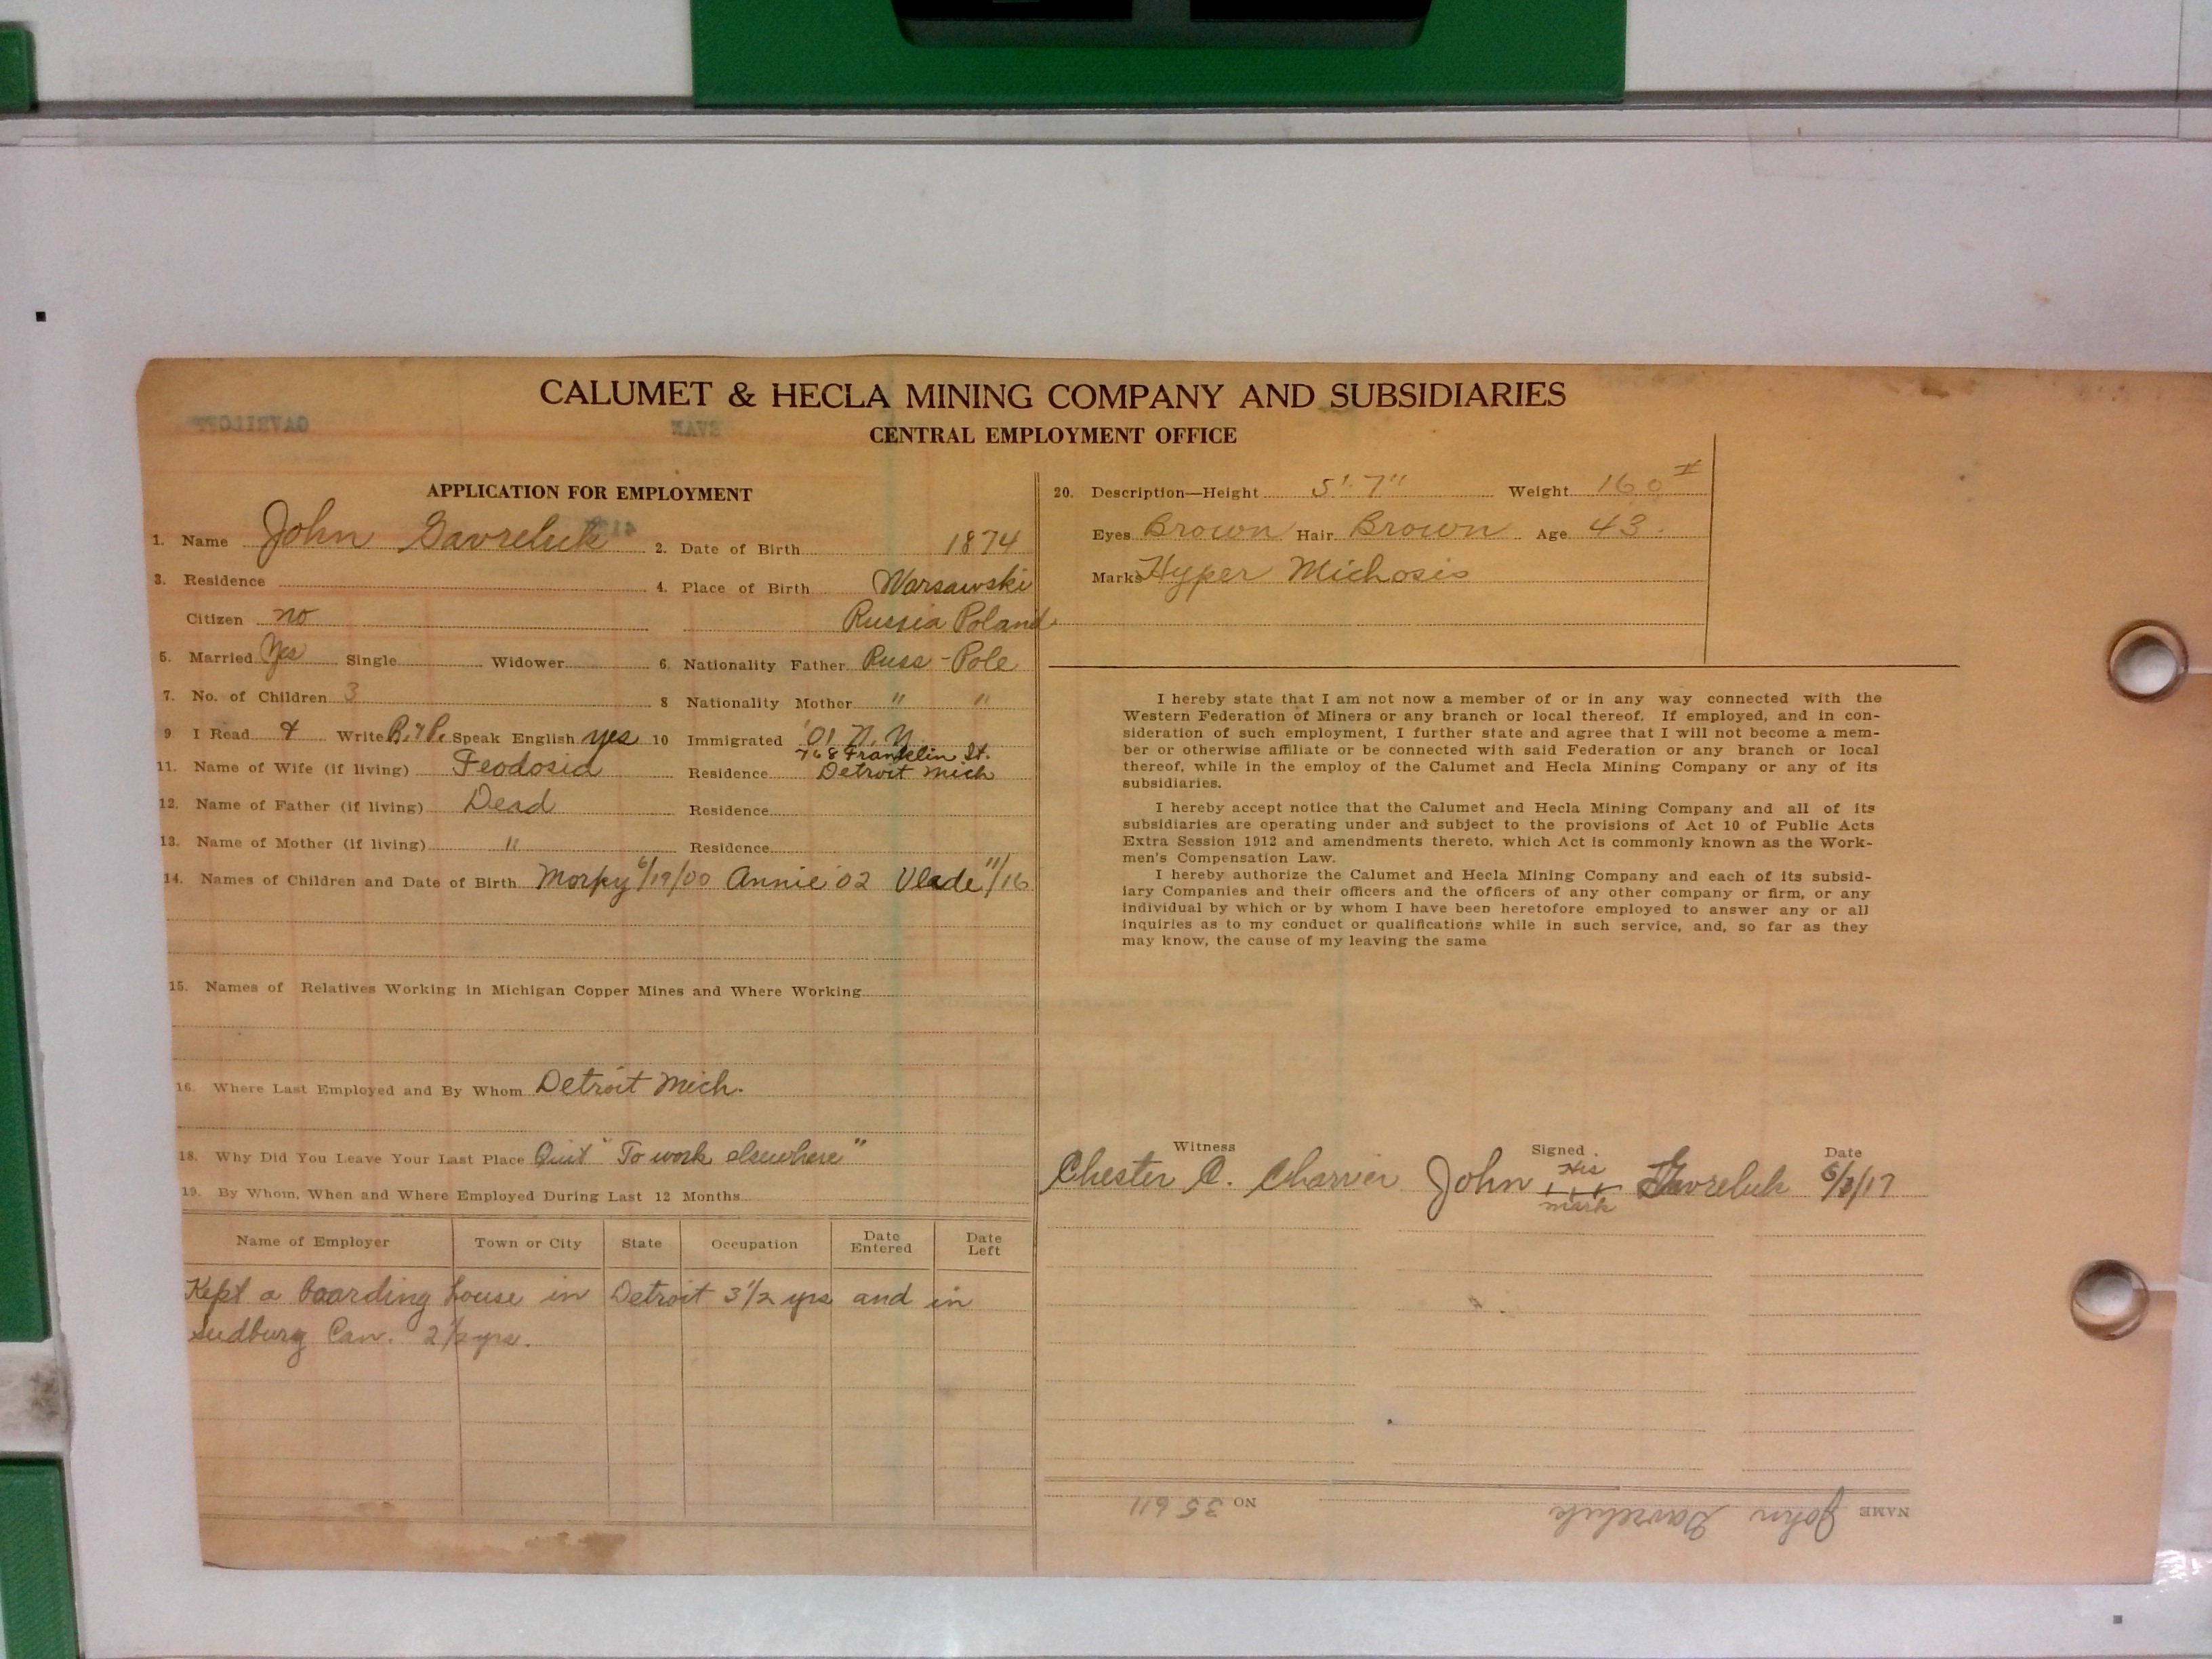 CALUMET & HECLA MINING COMPANY AND SUBSIDIARIES
CENTRAL EMPLOYMENT OFFICE
GAVRILOFF
EVAN
APPLICATION FOR EMPLOYMENT
1. Name John Gavreluk 2. Date of Birth 1874
3. Residence 4. Place of Birth Warsawski
Citizen no Russia Poland
5. Married Yes Single Widower 6. Nationality Father Russ - Pole
7. No. of Children 3 8 Nationality Mother " "
9 I Read & Write R. & P. Speak English yes 10 Immigrated '01 N. Y.
768 Franklin St.
11. Name of Wife (if living) Feodosia Residence Detroit Mich
12. Name of Father (if living) Dead Residence
13. Name of Mother (if living) " Residence
14. Names of Children and Date of Birth Morpy 6/19/00 Annie '02 Vlade 11/16
15. Names of Relatives Working in Michigan Copper Mines and Where Working
16. Where Last Employed and By Whom Detroit Mich.
18. Why Did You Leave Your Last Place Quit "To work elsewhere"
19. By Whom, When and Where Employed During Last 12 Months
Name of Employer Town or City State Occupation Date Entered Date Left
Kept a boarding house in Detroit 3 1/2 yrs and in
Sudbury Can. 2 1/2 yrs.
20. Description—Height 5' 7" Weight 160 #
Eyes Brown Hair Brown Age 43.
Marks Hyper Michosis
I hereby state that I am not now a member of or in any way connected with the
Western Federation of Miners or any branch or local thereof. If employed, and in con-
sideration of such employment, I further state and agree that I will not become a mem-
ber or otherwise affiliate or be connected with said Federation or any branch or local
thereof, while in the employ of the Calumet and Hecla Mining Company or any of its
subsidiaries.
I hereby accept notice that the Calumet and Hecla Mining Company and all of its
subsidiaries are operating under and subject to the provisions of Act 10 of Public Acts
Extra Session 1912 and amendments thereto, which Act is commonly known as the Work-
men's Compensation Law.
I hereby authorize the Calumet and Hecla Mining Company and each of its subsid-
iary Companies and their officers and the officers of any other company or firm, or any
individual by which or by whom I have been heretofore employed to answer any or all
inquiries as to my conduct or qualifications while in such service, and, so far as they
may know, the cause of my leaving the same
Witness Signed Date
Chester C. Charrier John His mark Gavreluk 5/3/17
NAME John Gavreluk NO 35611